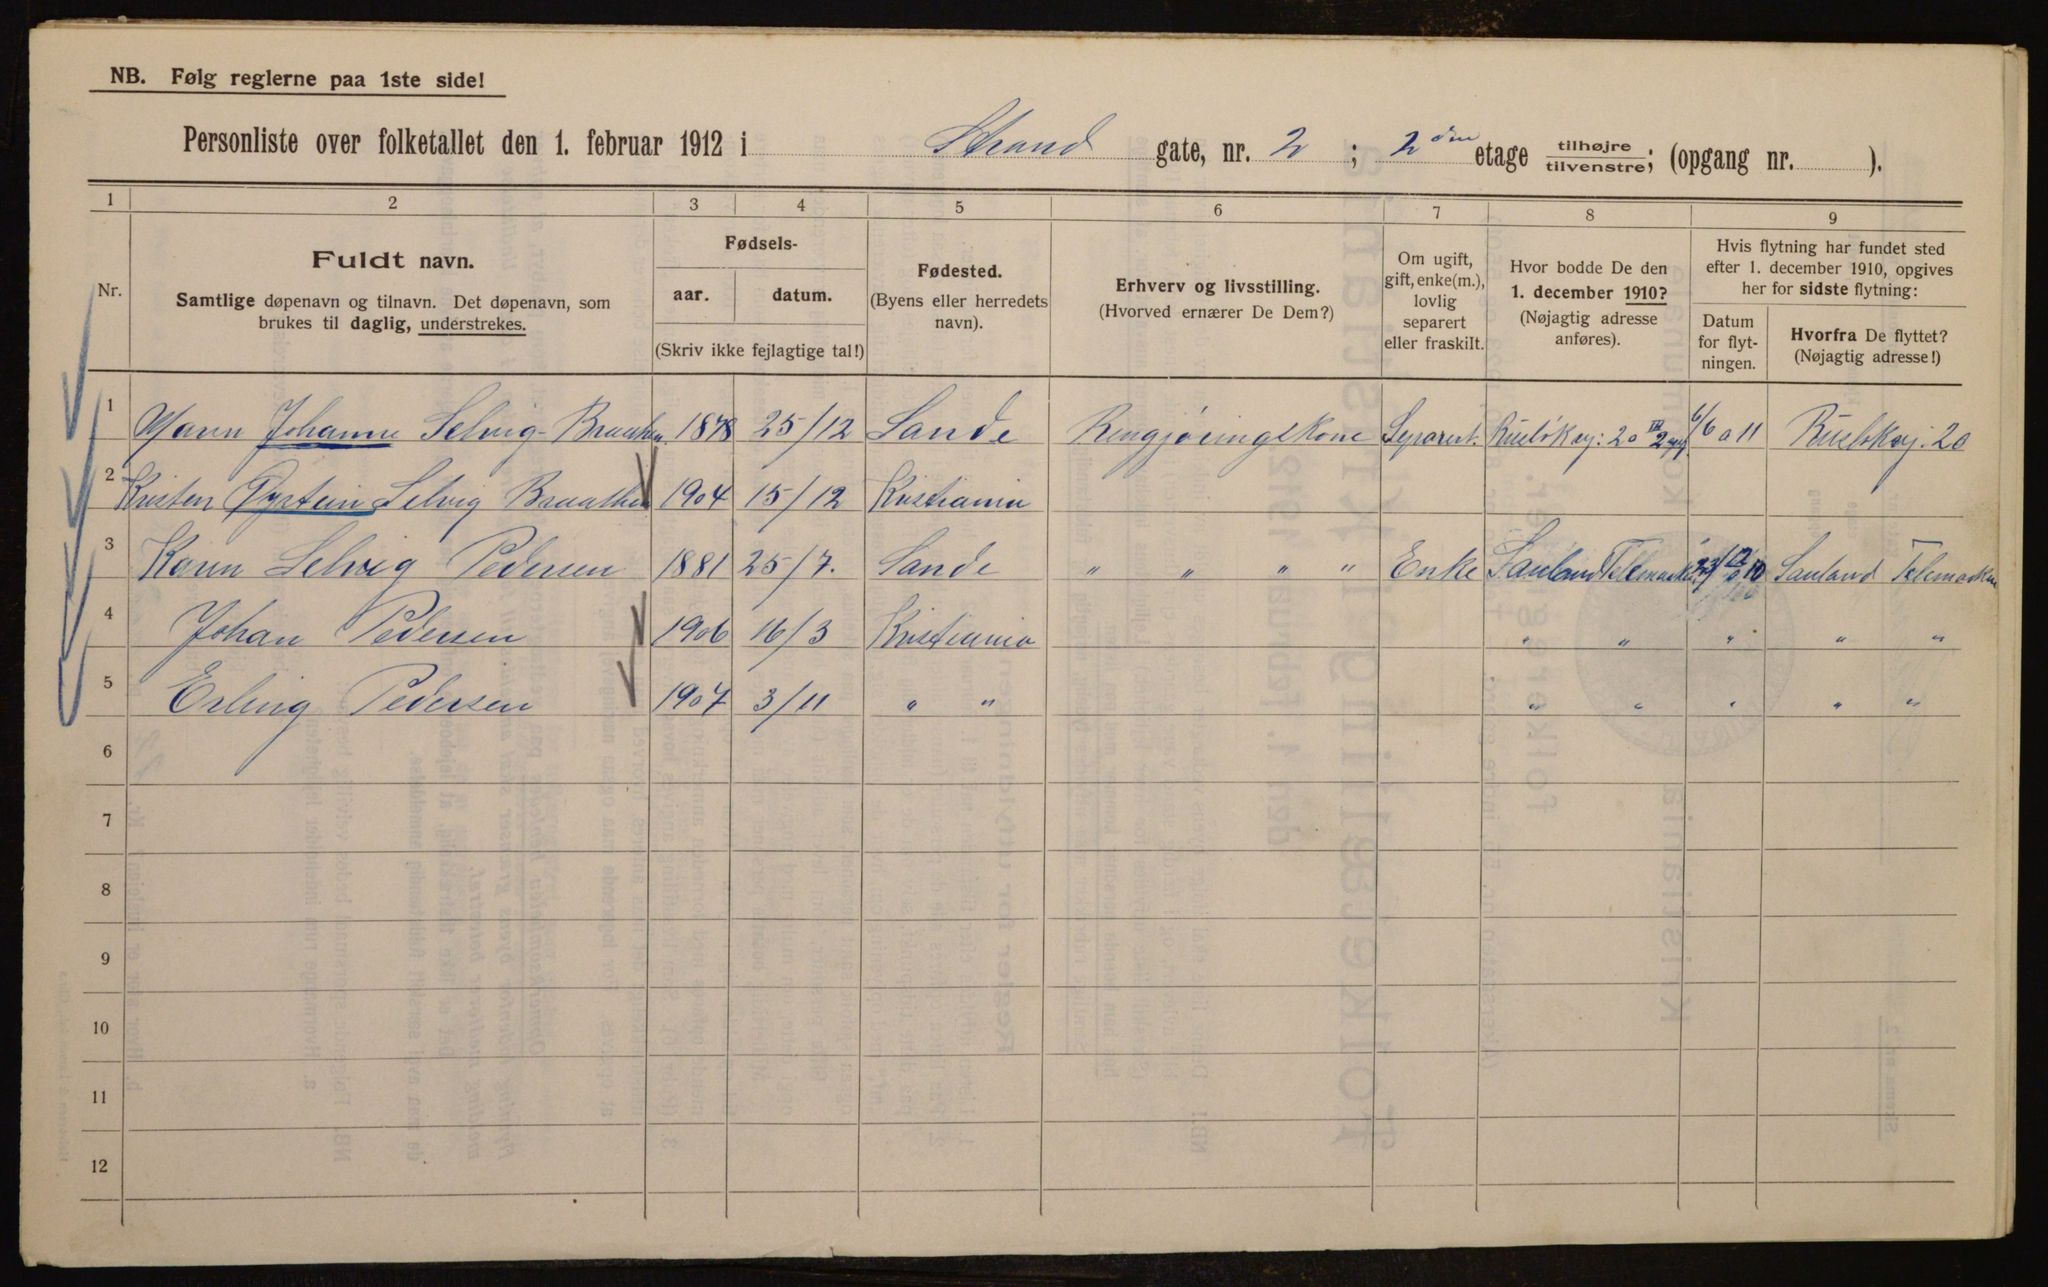 NB. Følg reglerne paa 1ste side!
Personliste over folketallet den 1. februar 1912 i Strand gate, nr. 2 ; 2den etage tilhøjre/tilvenstre; (opgang nr. ).
1 2 3 4 5 6 7 8 9
Nr.
Fuldt navn.
Samtlige døpenavn og tilnavn. Det døpenavn, som
brukes til daglig, understrekes.
Fødsels-
aar. datum.
(Skriv ikke fejlagtige tal!)
Fødested.
(Byens eller herredets
navn).
Erhverv og livsstilling.
(Hvorved ernærer De Dem?)
Om ugift,
gift, enke(m.),
lovlig
separert
eller fraskilt.
Hvor bodde De den
1. december 1910?
(Nøjagtig adresse
anføres).
Hvis flytning har fundet sted
efter 1. december 1910, opgives
her for sidste flytning:
Datum
for flyt-
ningen.
Hvorfra De flyttet?
(Nøjagtig adresse!)
1 Johanne Selvig-Braathen 1878 25/12 Sande Rengjøringskone Separert. 20 6/6 11 20
2 Kristen Øystein Selvig Braathen 1904 15/12 Kristiania
3 Karin Selvig Pedersen 1881 25/7. Sande " " " " Enke Sauland Telemarken 10 Sauland Telemarken
4 Johan Pedersen 1906 16/3 Kristiania " " " " "
5 Erling Pedersen 1907 3/11 " " " " " " "
6
7
8
9
10
11
12